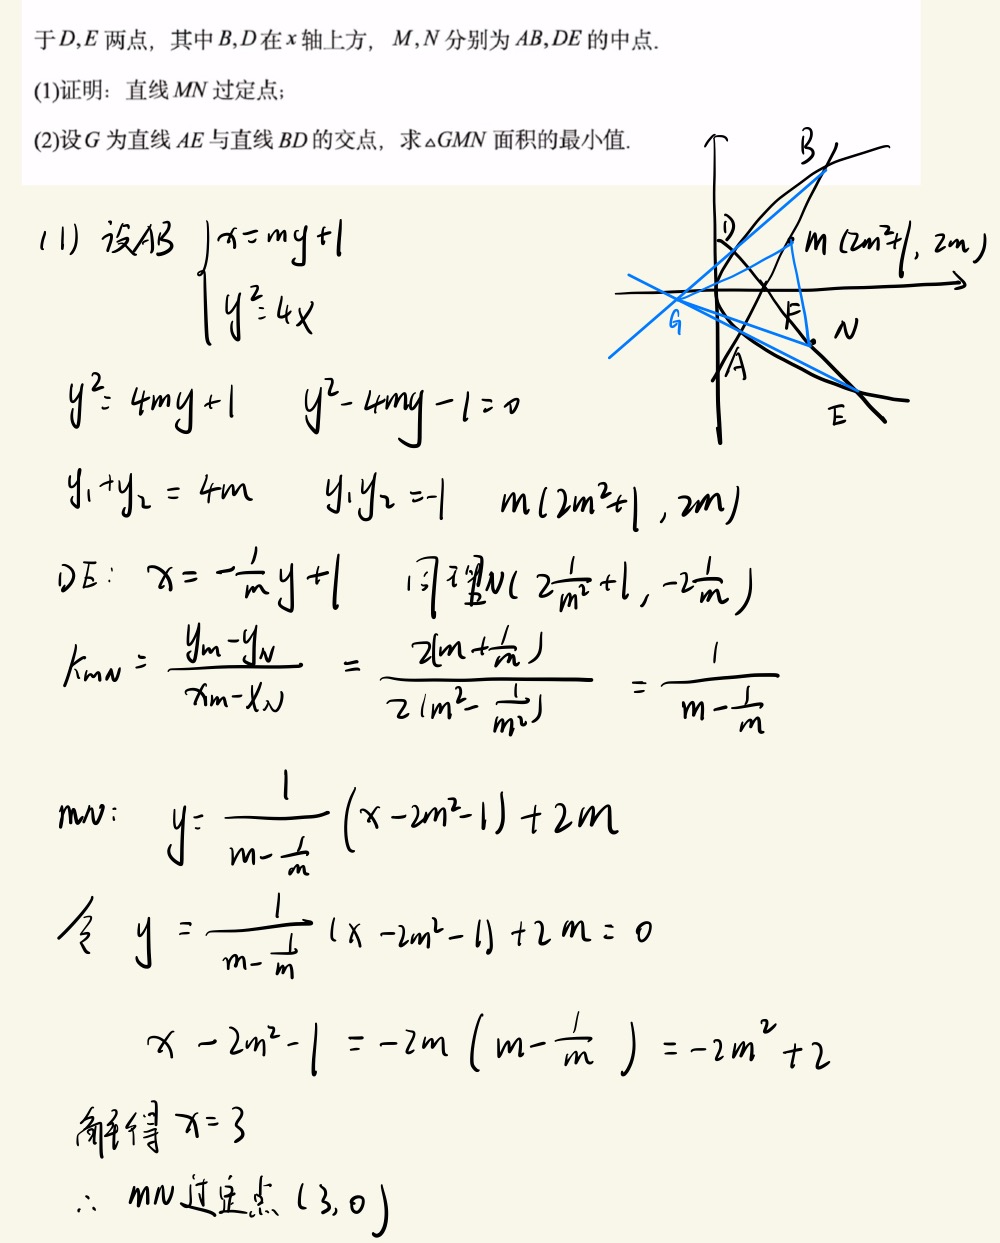 于D,E 两点，其中B,D在x轴上方，M,N分别为AB,DE的中点.
(1)证明：直线MN过定点；
(2)设G为直线AE与直线BD的交点，求△GMN面积的最小值.
B
D
M (2m²+1, 2m)
F
G
N
A
E
(1) 设AB { x=my+1
y²=4x
y²=4my+1  y²-4my-1=0
y₁+y₂=4m  y₁y₂=-1  m(2m²+1, 2m)
DE: x=-\frac{1}{m}y+1  同理N(2\frac{1}{m²}+1, -2\frac{1}{m})
k_{MN}=\frac{y_m-y_N}{x_m-x_N}=\frac{2(m+\frac{1}{m})}{2(m²-\frac{1}{m²})}=\frac{1}{m-\frac{1}{m}}
MN: y=\frac{1}{m-\frac{1}{m}}(x-2m²-1)+2m
令 y=\frac{1}{m-\frac{1}{m}}(x-2m²-1)+2m=0
x-2m²-1=-2m(m-\frac{1}{m})=-2m²+2
解得 x=3
∴ MN过定点(3,0)